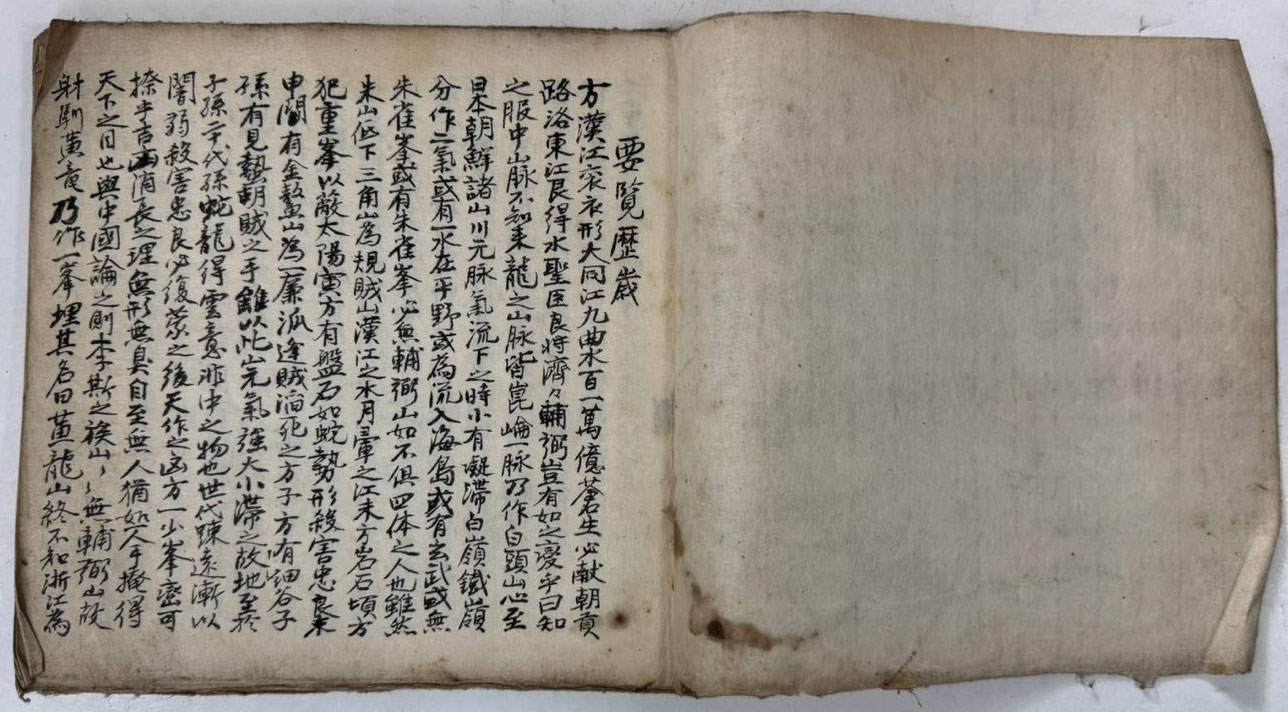 要覽歷歲
方漢江袞衣形大同江九曲水百一萬億蒼生必献朝貢
路洛東江艮得水聖臣良將濟々輔弼豈有如之憂乎曰知
之服中山脉不知来龍之山脉皆崑崙一脉乃作白頭山心至
日本朝鮮諸山川元脉氣流下之時小有凝滯白嶺鐵嶺
分作二氣或有一水在平野或為流入海島或有玄武或無
朱雀峯或有朱雀峯必無輔弼山如不俱四体之人也雖然
朱山低下三角山為規賊山漢江之水月暈之江末方岩石頃方
犯重峯以蔽太陽寅方有盤石如蛇勢形殺害忠良東
申閣有金鰲山為一廉派逢賊滔死之方子方有細谷子
孫有見執朝賊之手雖以此山元氣强大小滯之故地至於
子孫二千代孫蛇龍得雲意非中之物也世代踈遠漸以
闇弱殺害忠良必復蒙之後天作之凶方一少峯密可
捺乎吉凶消長之理無形無臭自至無人猶如人手掩得
天下之目也與中國論之則李斯之族山々無輔弼山故
射馴黃竜乃作一峯埋其名曰黃龍山終不知浙江為